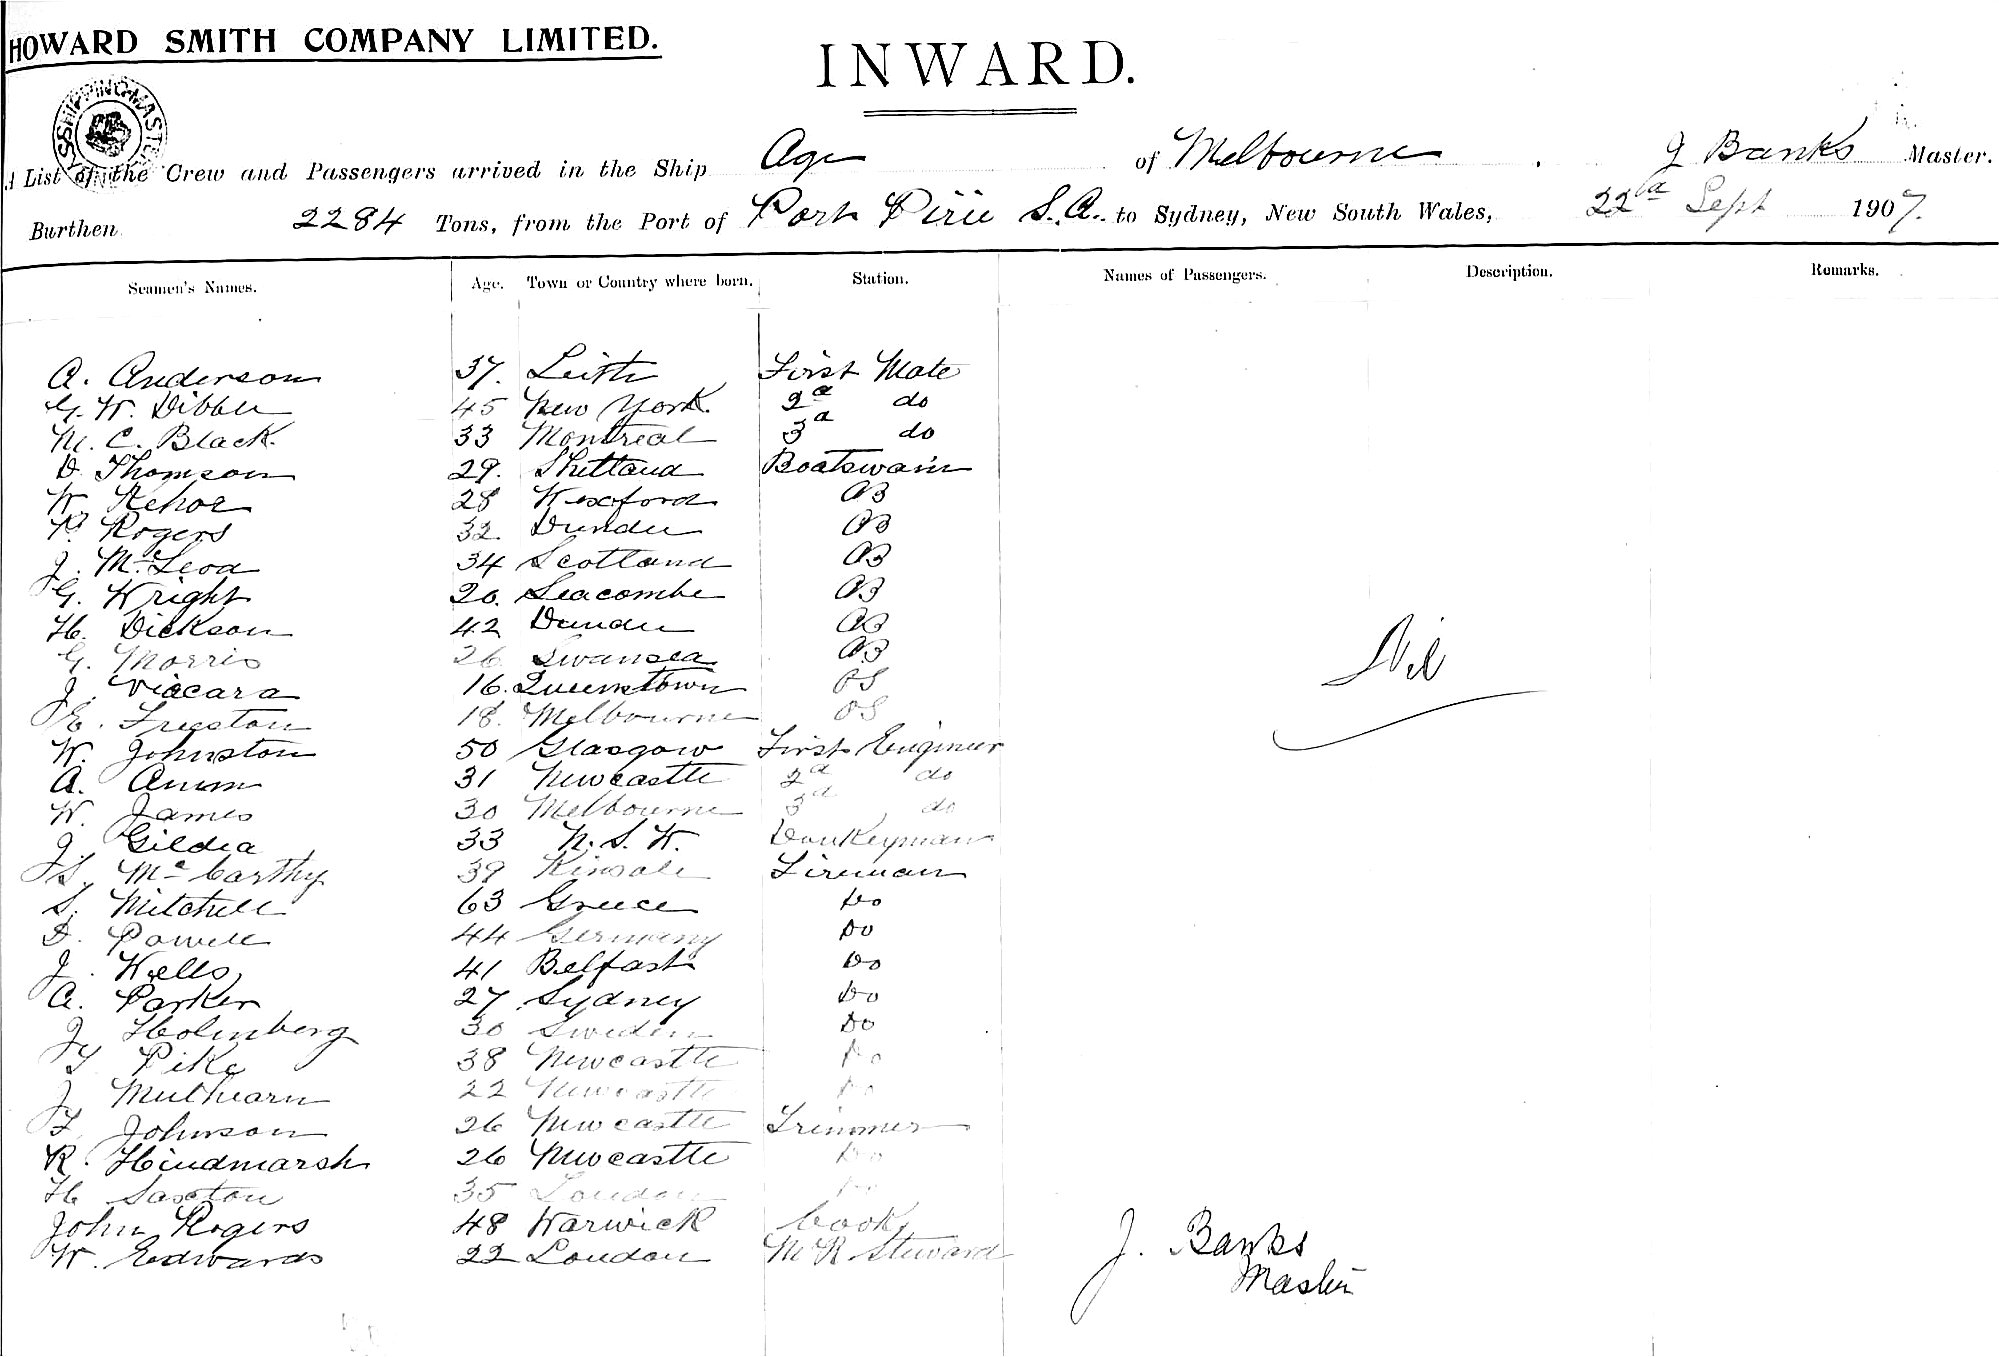 HOWARD SMITH COMPANY LIMITED.
INWARD.
SHIPPING MASTER
A List of the Crew and Passengers arrived in the Ship Age of Melbourne . J Banks Master.
Burthen 2284 Tons, from the Port of Port Pirie S.A. to Sydney, New South Wales, 22nd Sept 1907.
Seamen's Names. Age. Town or Country where born. Station. Names of Passengers. Description. Remarks.
A. Anderson 37. Leith First Mate
G. W. Dibble 45 New York. 2d do
M. C. Black. 33 Montreal 3d do
D. Thomson 29. Shetland Boatswain
W. Kehoe 28 Wexford AB
P. Rogers 32. Dundee AB
J. McLeod 34 Scotland AB
G. Wright 20. Seacombe AB
H. Dickson 42 Dundee AB
G. Morris 26 Swansea AB
J. Viacara 16. Queenstown OS
E. Freeston 18. Melbourne OS
W. Johnston 50 Glasgow First Engineer
A. 31 Newcastle 2d do
W. James 30 Melbourne 3d do
J. Gildea 33 N. S. W. Donkeyman
McCarthy 39 Kinsale Fireman
S. Mitchell 63 Greece Do
D. Powell 44 Germany Do
J. Wells 41 Belfast Do
A. Parker 27 Sydney Do
J. Holmberg 30 Sweden Do
Pike 38 Newcastle Do
J. Mulhearn 22 Newcastle Do
F. Johnson 26 Newcastle Trimmer
R. Hindmarsh 26 Newcastle Do
H Saxton 35 London Do
John Rogers 48 Warwick Cook
W. Edwards 22 London M R Steward
Nil
J. Banks
Master